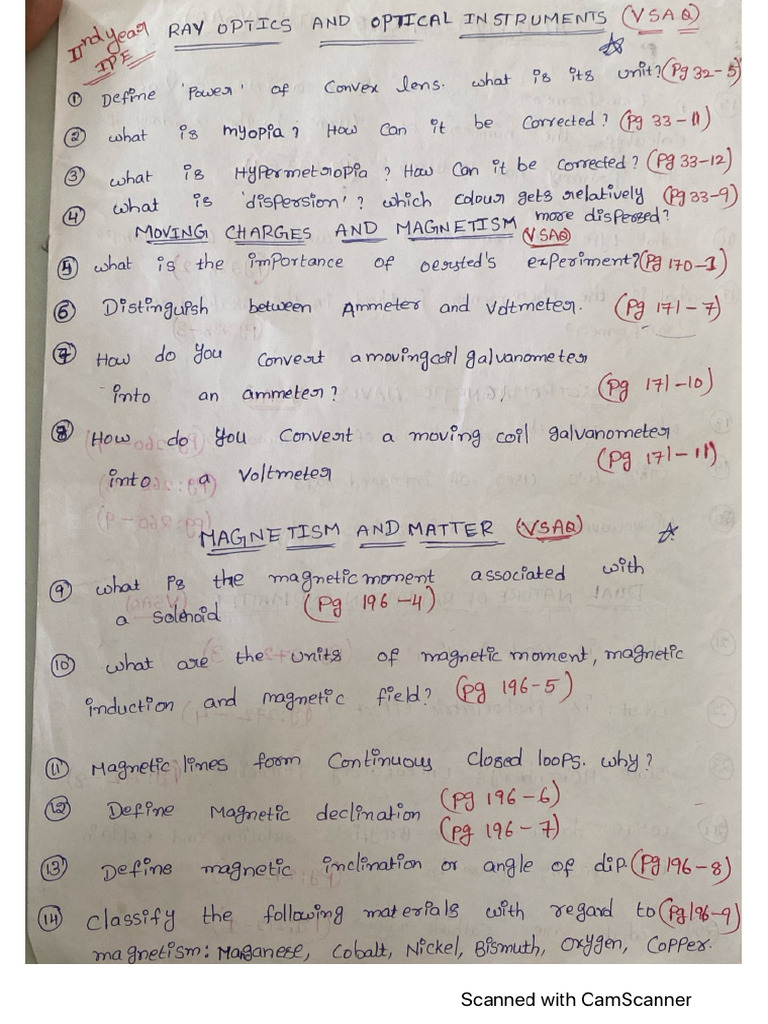 IInd year
IPE
RAY OPTICS AND OPTICAL INSTRUMENTS (VSAQ)
① Define 'Power' of Convex lens. what is its unit? (Pg 32-5)
② what is myopia? How Can it be Corrected? (Pg 33-11)
③ what is Hypermetropia? How Can it be corrected? (Pg 33-12)
④ what is 'dispersion'? which colour gets relatively (Pg 33-9)
more dispersed?
MOVING CHARGES AND MAGNETISM (VSAQ)
⑤ what is the importance of oersted's experiment? (Pg 170-1)
⑥ Distinguish between Ammeter and Voltmeter. (Pg 171-7)
⑦ How do you Convert a moving coil galvanometer
into an ammeter? (Pg 171-10)
⑧ How do you Convert a moving coil galvanometer
into a Voltmeter (Pg 171-11)
MAGNETISM AND MATTER (VSAQ)
⑨ what is the magnetic moment associated with
a solenoid (Pg 196-4)
⑩ what are the units of magnetic moment, magnetic
induction and magnetic field? (pg 196-5)
⑪ Magnetic lines form Continuous Closed loops. why?
(pg 196-6)
⑫ Define Magnetic declination (Pg 196-7)
⑬ Define magnetic inclination or angle of dip. (Pg 196-8)
⑭ Classify the following materials with regard to (Pg 196-9)
magnetism: Maganese, Cobalt, Nickel, Bismuth, Oxygen, Copper.
Scanned with CamScanner